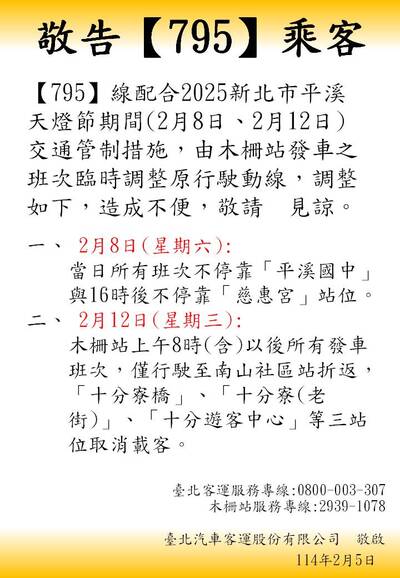 敬告【795】乘客
【795】線配合2025新北市平溪
天燈節期間(2月8日、2月12日)
交通管制措施，由木柵站發車之
班次臨時調整原行駛動線，調整
如下，造成不便，敬請　見諒。
一、 2月8日(星期六):
當日所有班次不停靠「平溪國中」
與16時後不停靠「慈惠宮」站位。
二、 2月12日(星期三):
木柵站上午8時(含)以後所有發車
班次，僅行駛至南山社區站折返，
「十分寮橋」、「十分寮(老
街)」、「十分遊客中心」等三站
位取消載客。
臺北客運服務專線:0800-003-307
木柵站服務專線:2939-1078
臺北汽車客運股份有限公司　敬啟
114年2月5日